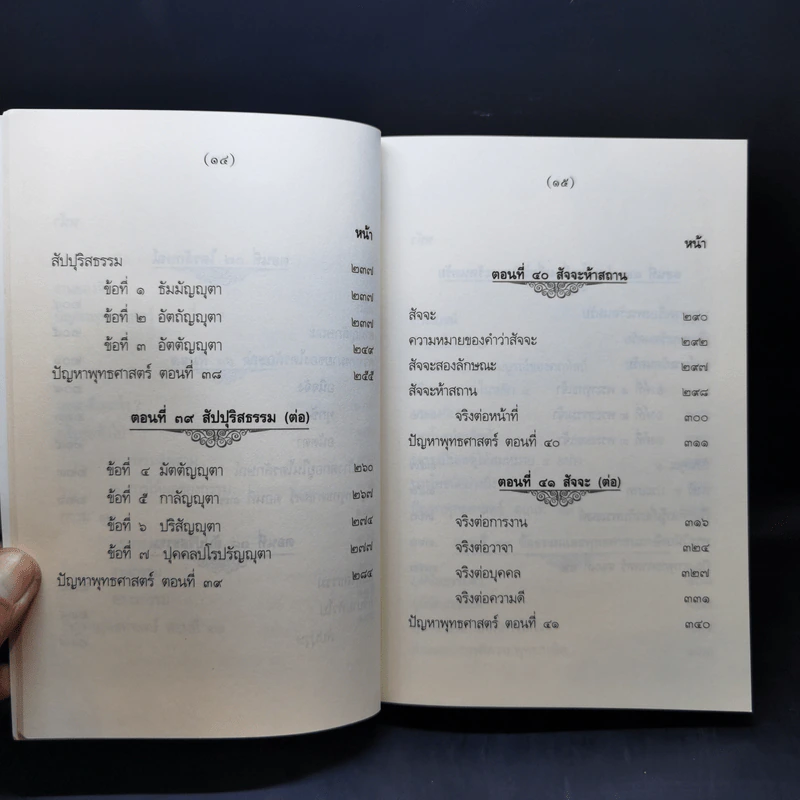 (๑๔)
หน้า
สัปปุริสธรรม ๒๓๗
ข้อที่ ๑ ธัมมัญญุตา ๒๓๗
ข้อที่ ๒ อัตถัญญุตา ๒๓๗
ข้อที่ ๓ อัตตัญญุตา ๒๔๙
ปัญหาพุทธศาสตร์ ตอนที่ ๓๘ ๒๕๕
ตอนที่ ๓๙ สัปปุริสธรรม (ต่อ)
ข้อที่ ๔ มัตตัญญุตา ๒๖๐
ข้อที่ ๕ กาลัญญุตา ๒๖๗
ข้อที่ ๖ ปริสัญญุตา ๒๗๔
ข้อที่ ๗ ปุคคลปโรปรัญญุตา ๒๗๗
ปัญหาพุทธศาสตร์ ตอนที่ ๓๙ ๒๘๔
(๑๕)
หน้า
ตอนที่ ๔๐ สัจจะห้าสถาน
สัจจะ ๒๙๐
ความหมายของคำว่าสัจจะ ๒๙๒
สัจจะสองลักษณะ ๒๙๗
สัจจะห้าสถาน ๒๙๘
จริงต่อหน้าที่ ๓๐๐
ปัญหาพุทธศาสตร์ ตอนที่ ๔๐ ๓๑๑
ตอนที่ ๔๑ สัจจะ (ต่อ)
จริงต่อการงาน ๓๑๖
จริงต่อวาจา ๓๒๔
จริงต่อบุคคล ๓๒๗
จริงต่อความดี ๓๓๑
ปัญหาพุทธศาสตร์ ตอนที่ ๔๑ ๓๔๐